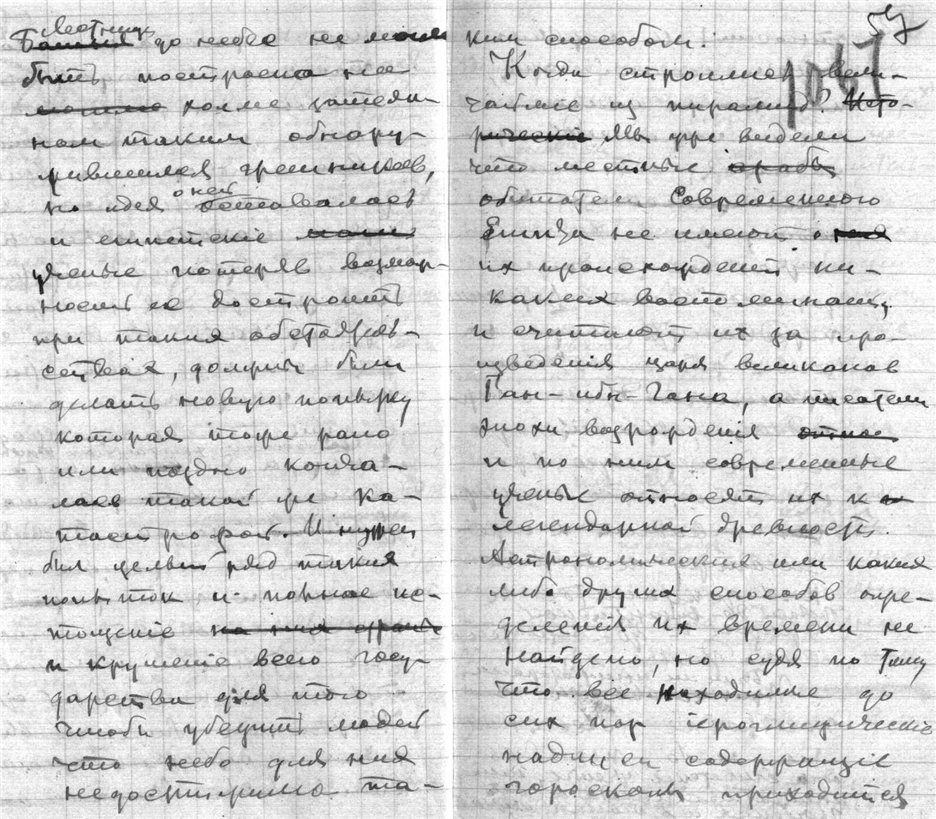 Лестница
Башня до небес не могла
быть построена на
холме затеян-
ном таким обнару-
жившихся грешников,
но идея о ней оставалась
и египетскіе
ученые потеряв возмож-
ность ее достроить
при таких обстоятель-
ствах, должны были
делать новую попытку
которая тоже рано
или поздно конча-
лась такой же ка-
тастрофой. И нужен
был целый ряд таких
попыток и полное ис-
тощеніе
и крушеніе всего госу-
дарства для того
чтобы убедить людей
что небо для них
недостижимо та-
ким способом.
Когда строилися вели-
чайшіе из пирамид? Исто-
рически Мы уже видели
что местные арабы
обитатели Современного
Египта не имеют о
их происхожденіи ни-
каких воспоминаній,
и считают их за про-
изведенія царя великанов
Ган-ибн-Гана, а писатели
эпохи возрожденія относ
и по ним современные
ученые относят их к
легендарной древности.
Астрономических или каких
либо других способов опре-
деленія их времени не
найдено, но судя по тому
что все находимые до
сих пор іероглифическіе
надписи содержащіе
гороскопы приходится